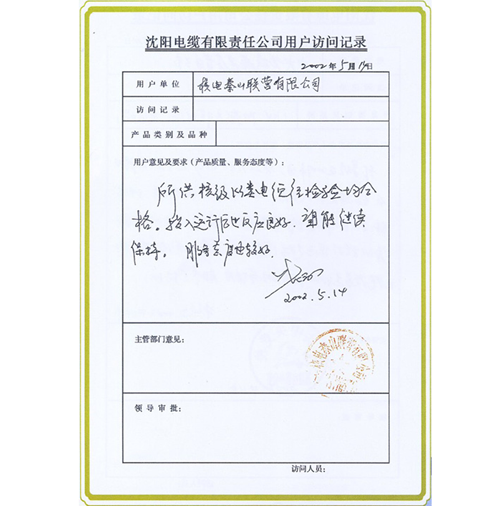 沈阳电缆有限责任公司用户访问记录
2002年5月14日
用户单位 核电秦山联营有限公司
访问记录
产品类别及品种
用户意见及要求（产品质量、服务态度等）：
所供核级K3类电缆经检验均合
格。投入运行后反应良好，望能继续
保持。服务态度也较好。
2002.5.14
主管部门意见：
核电秦山联营有限公司
领导审批：
访问人员：